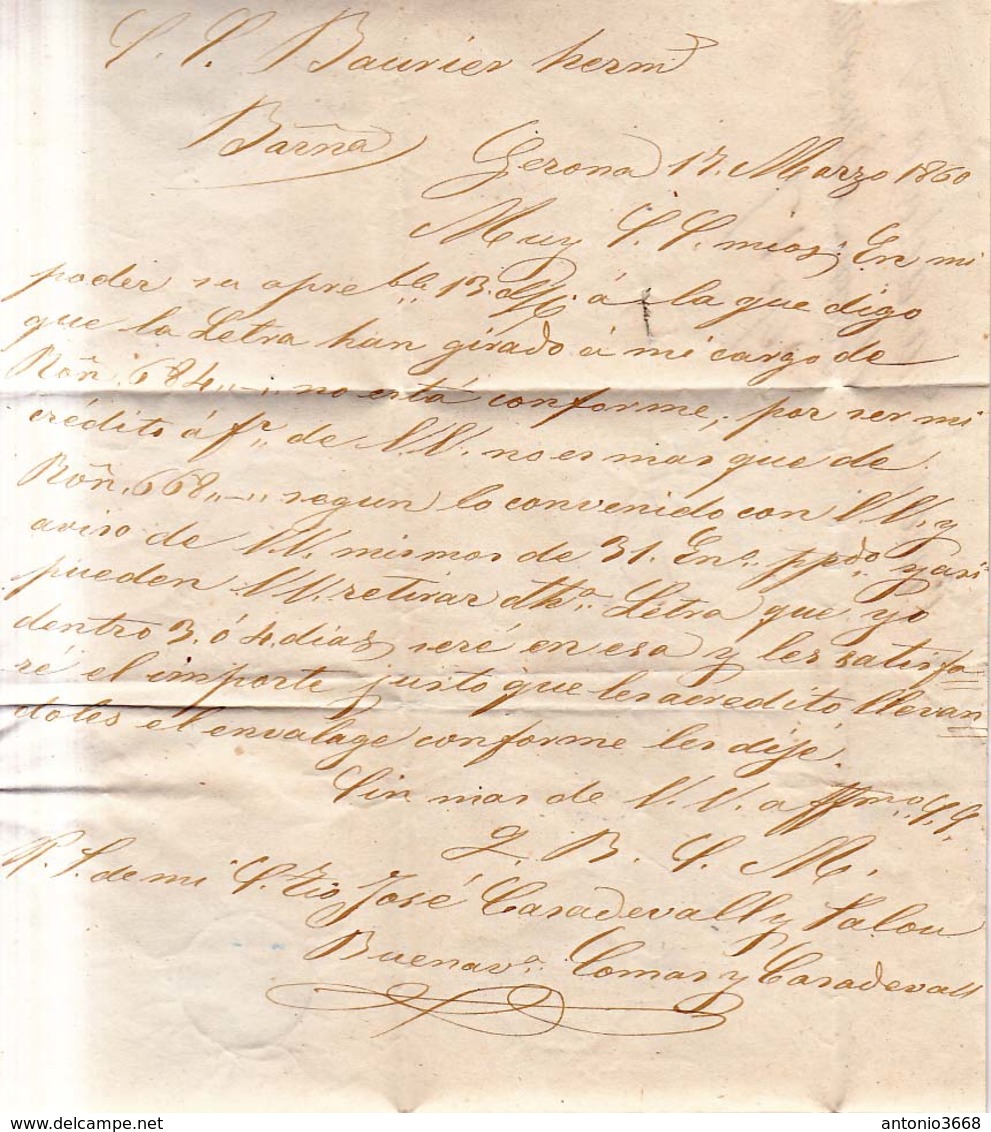 S. S. Baurier herm.ˢ
Barña
Gerona 17. Marzo 1860
Muy S. S. mios: En mi
poder su apre.ble 13. d/c. á la que digo
que la Letra han girado á mi cargo de
Rõn. 684,,-,, no está conforme, por ser mi
crédito á fr. de V.V. no es mas que de
Rõn. 668,,-,, segun lo convenido con V.V. y
aviso de V.V. mismos de 31. En.º ppdo. y asi
pueden V.V. retirar dha. Letra que yo
dentro 3. ó 4. dias, seré en esa y les satisfa=
ré el importe justo que les acredito, llevan=
doles el envalage conforme les dije.
Sin mas de V.V. affmo. S.S.
Q. B. S. M.
P. S. de mi S. tio José Casadevall y Palou
Buenav.ª Comas y Casadevall
antonio3668
www.delcampe.net